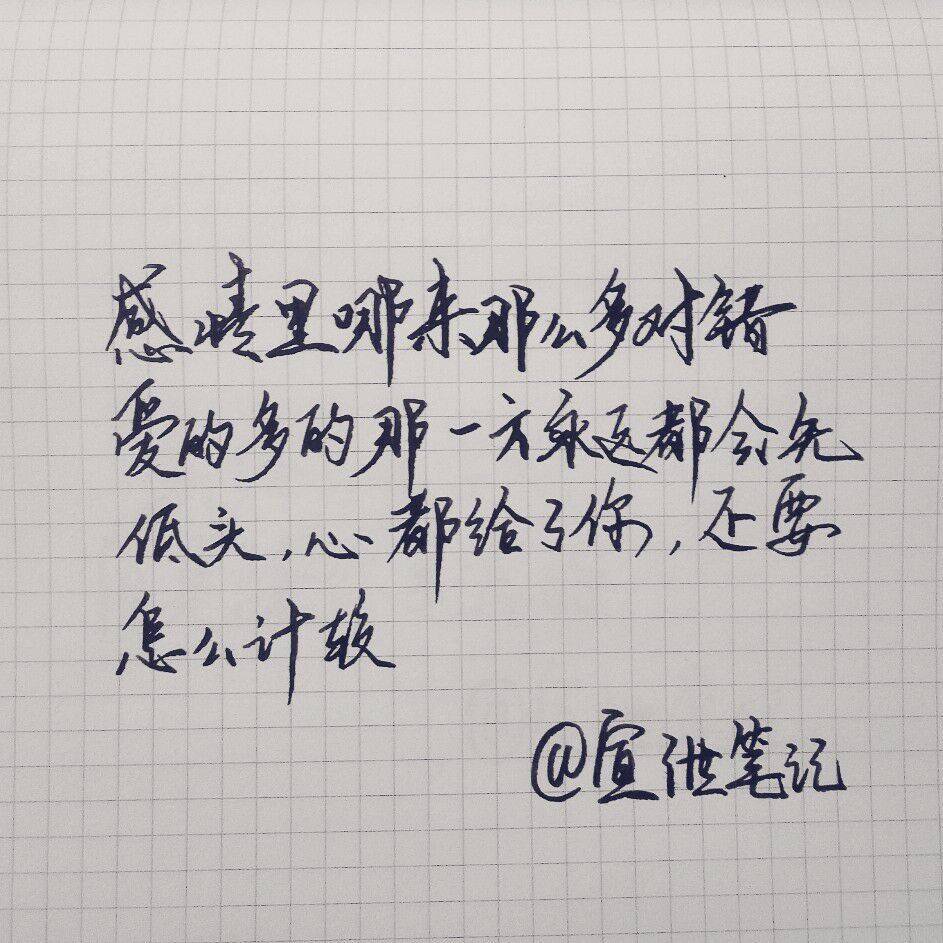 感情里哪来那么多对错
爱的多的那一方永远都会先
低头,心都给了你,还要
怎么计较
@宣泄笔记